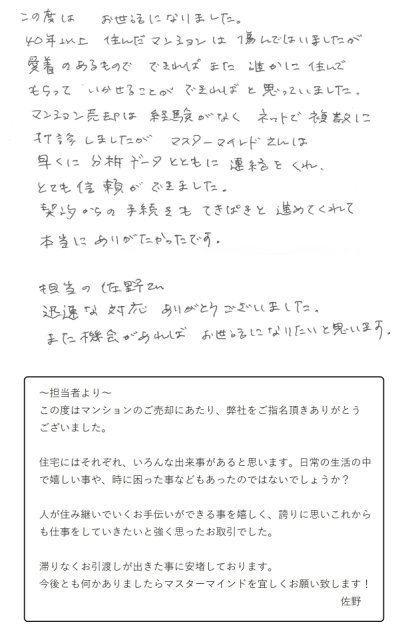 この度は お世話になりました。
40年以上 住んだマンションは 傷んではいましたが
愛着のあるもので できればまた 誰かに住んで
もらって いかせることが できればと思っていました。
マンション売却は 経験がなく ネットで複数に
打診しましたが マスターマインドさんは
早くに 分析データとともに 連絡をくれ、
とても信頼ができました。
契約からの手続きも てきぱきと 進めてくれて
本当に ありがたかったです。
担当の 佐野さん
迅速な対応 ありがとうございました。
また機会があれば お世話になりたいと思います。
～担当者より～
この度はマンションのご売却にあたり、弊社をご指名頂きありがとう
ございました。
住宅にはそれぞれ、いろんな出来事があると思います。日常の生活の中
で嬉しい事や、時に困った事などもあったのではないでしょうか？
人が住み継いでいくお手伝いができる事を嬉しく、誇りに思いこれから
も仕事をしていきたいと強く思ったお取引でした。
滞りなくお引渡しが出来た事に安堵しております。
今後とも何かありましたらマスターマインドを宜しくお願い致します！
佐野